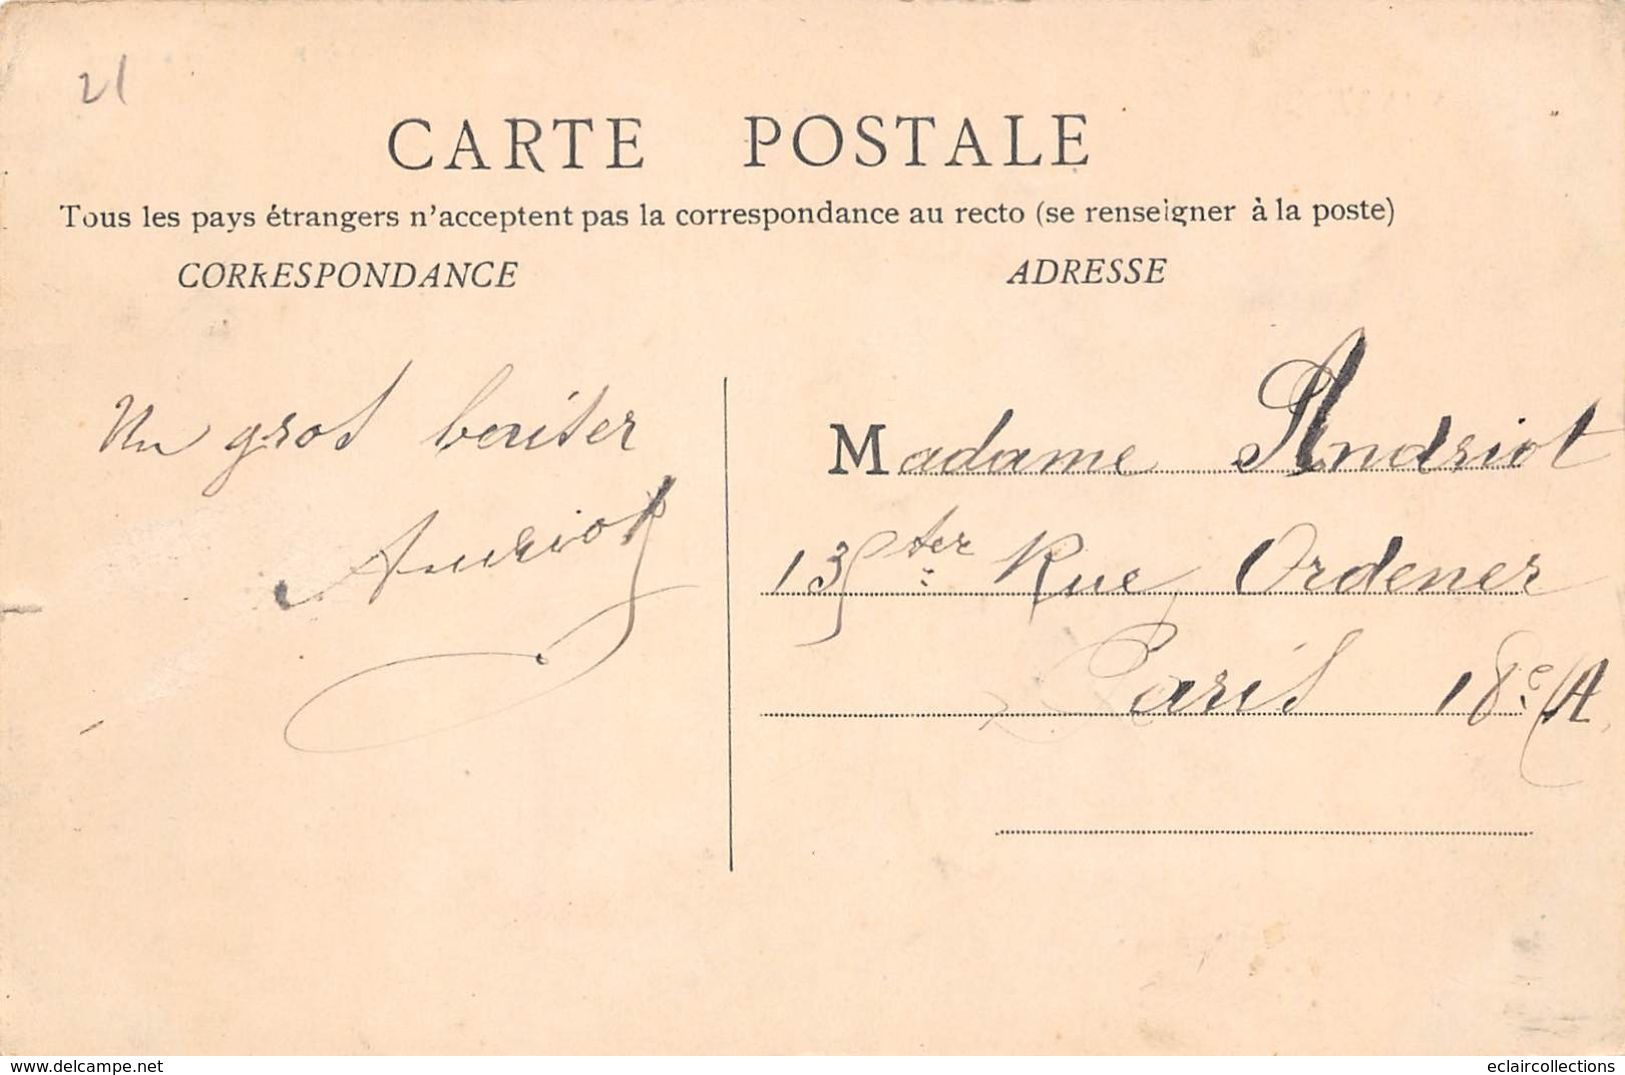 21
CARTE POSTALE
Tous les pays étrangers n'acceptent pas la correspondance au recto (se renseigner à la poste)
CORRESPONDANCE
ADRESSE
Un gros baiser
Andriot
Madame Andriot
135 ter Rue Ordener
Paris 18e A
www.delcampe.net
eclaircollections